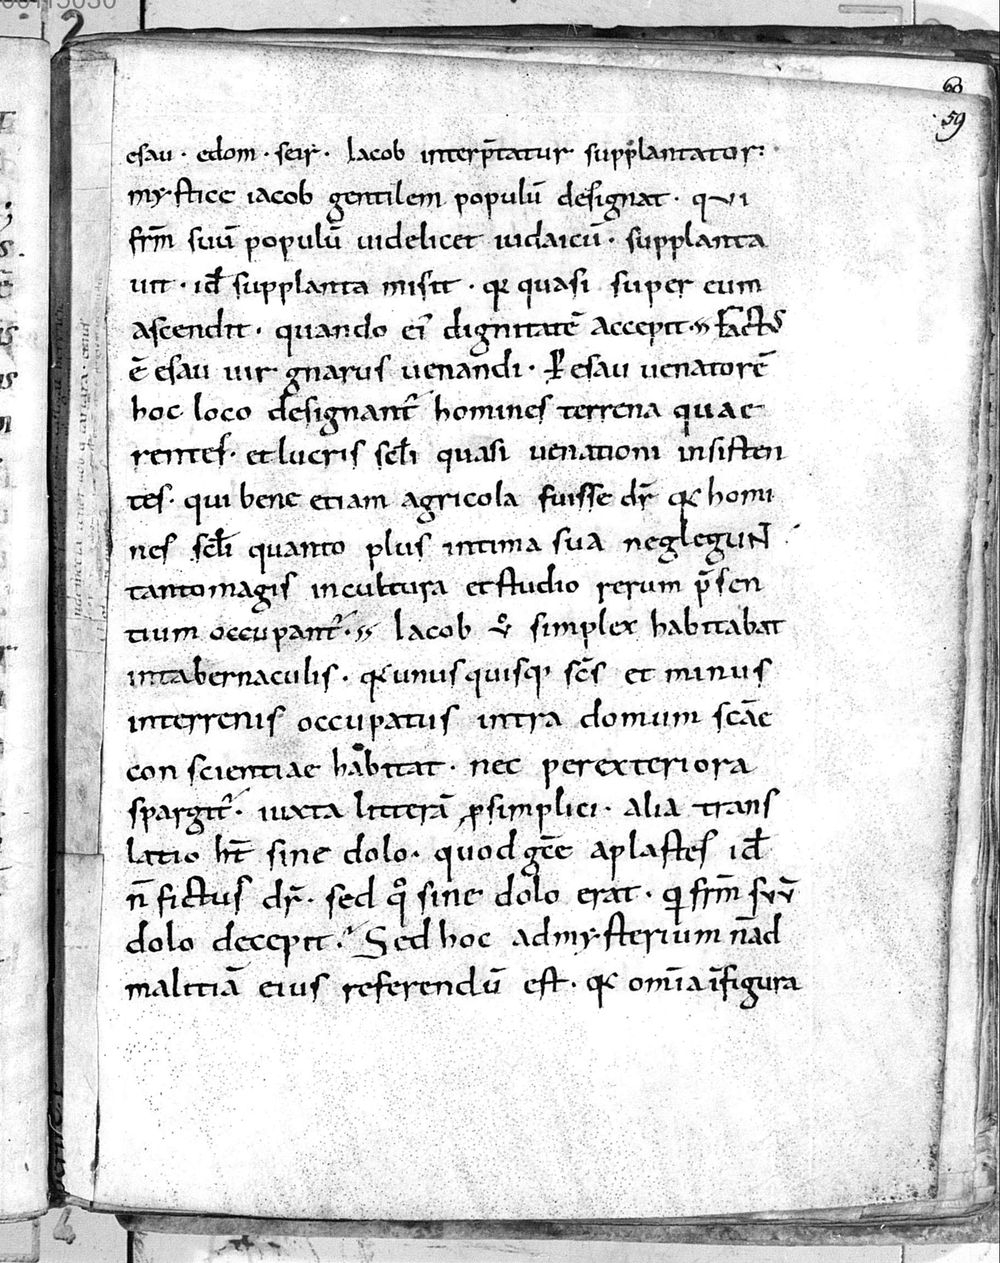 60
59
esau · edom · seir · Iacob interp̄tatur supplantator:
mystice iacob gentilem populū designat · qui
frm̄ suū populū uidelicet iudaicū · supplanta
uit · id̄ supplanta misit · qꝛ quasi super eum
ascendit · quando ei᷒ dignitatē accepit ·,, Factus
ē esau uir gnarus uenandi · Per esau uenatorē
hoc loco designant᷒ homines terrena quae
rentes · et lucris sc̄li quasi uenationi insisten
tes · qui bene etiam agricola fuisse dr̄ qꝛ homi
nes sc̄li quanto plus intima sua neglegunt ·
tanto magis in cultura et studio rerum p̄sen
tium occupant᷒ ·,, Iacob v̊ simplex habitabat
in tabernaculis · qꝛ unus quisq; sc̄s et minus
in terrenis occupatus intra domum sc̄ae
con scientiae habitat · nec per exteriora
spargit᷒ · iuxta litterā ꝓ simplici · alia trans
latio ht̄ sine dolo · quod gr̄e aplastes id̄
n̄ fictus dr̄ · sed qͦ sine dolo erat · qi frm̄ suū
dolo decepit · Sed hoc ad mysterium n̄ ad
malitiā eius referendū est · qꝛ om̄ia ī figura